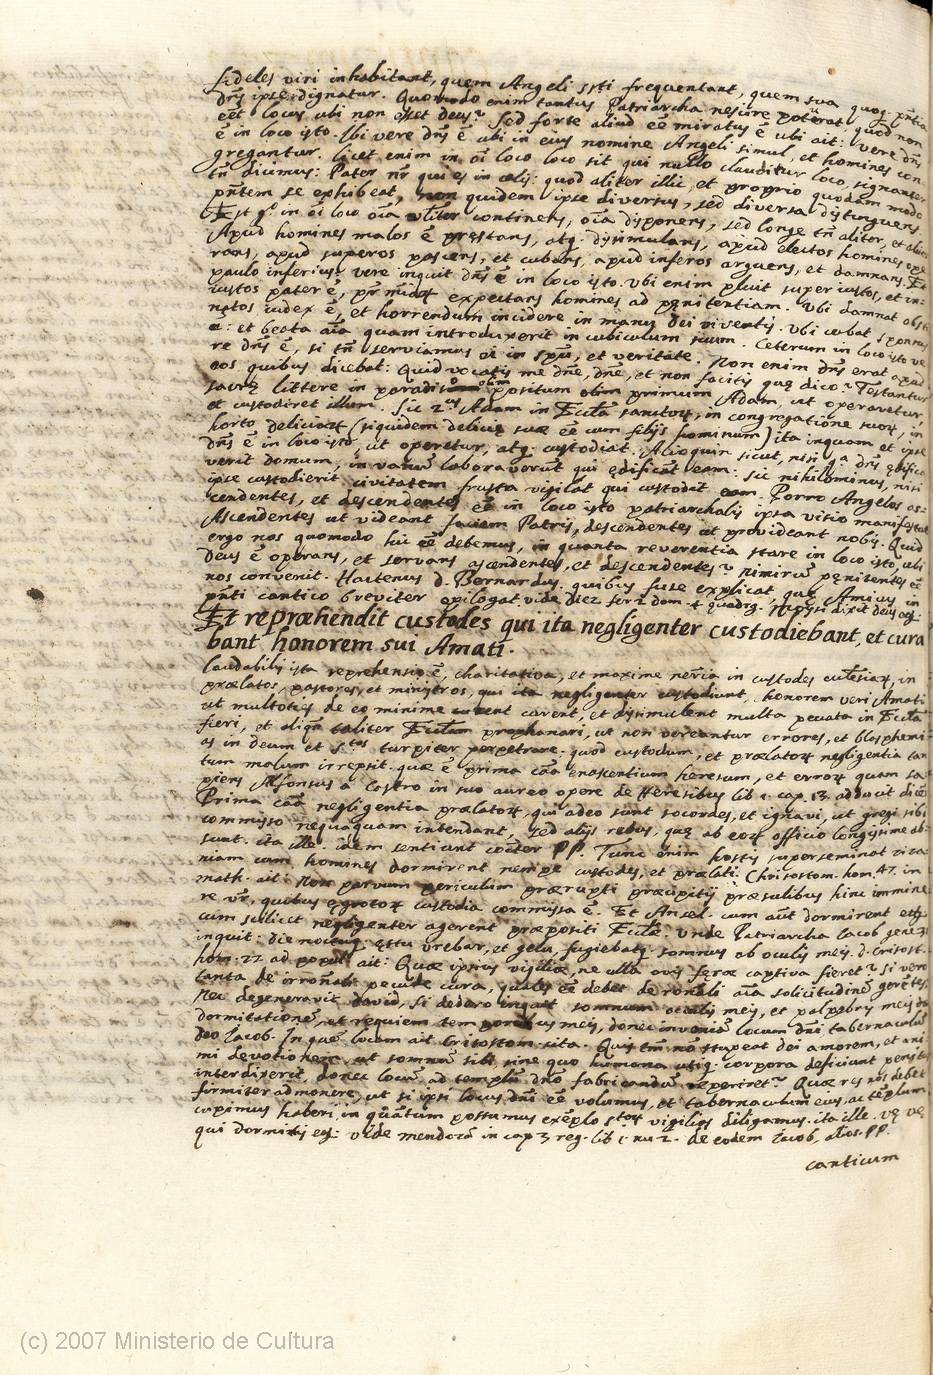 fideles viri inhabitant, quem Angeli s̃ti frequentant, quem sua quoq̨ p̃ntia
dñs ipse dignatur. Quomodo enim tantus Patriarcha nescire poterat quod non
eẽt locus ubi non esset deus? Sed forte aliud eẽ miratus ẽ ubi ait: vere dñs
ẽ in loco isto. Ibi vere dñs ẽ ubi in eius nomine Angeli simul, et homines con
gregantur. licet enim in oĩ loco sit qui nullo clauditur loco, signanter
tñ dicimus: Pater nr̃ qui es in cœlis: quod aliter illic, et proprio quodam modo
p̃ntem se exhibeat, non quidem ipse diversus, sed diversa distinguens.
Est q.º in oĩ loco oĩa continens, oĩa disponens, sed longe tñ aliter, et aliter
Apud homines malos ẽ pręstans, atq. dissimulans, apud electos homines ope
rans, apud superos pascens, et cubans, apud inferos arguens, et damnans. Et
paulo inferius: vere inquit dñs ẽ in loco isto. Ubi enim pluit super iustos, et in-
iustos pater ẽ, expectans homines ad pęnitentiam. Ubi damnat obsti
natos iudex ẽ, et horrendum incidere in manus dei viventis. Ubi cubat sponsus
ẽ: et beata aĩa quam introduxerit in cubiculum suum. Ceterum in loco isto ve
re dñs ẽ, si tñ serviamus ei in spũ, et veritate. Non enim dñs erat apud
eos quibus dicebat: Quid vocatis me dñe, dñe, et non facitis quę dico? Testantur
sacrę littere in paradiso positum olim primum Adam, ut operaretur,
et custodiret illum. Sic 2.us Adam in Eccl̃a sanctor̃, in congregatione suor̃, in
horto deliciar̃ (siquidem delicię suæ eẽ cum filijs hominum) ita inquam et ipse
dñs ẽ in loco isto, ut operetur, atq. custodiat. Alioquin sicut, nisi dñs ędifica
verit domum, in vanũ laboraverũt qui ędificãt eam: sic nihilominus, nisi
ipse custodierit civitatem frustra vigilat qui custodit eam. Porro Angelos as=
cendentes, et descendentes eẽ in loco isto patriarchalis ipsa visio manifestat
Ascendentes ut videant faciem Patris, descendentes ut provideant nobis. Quid
ergo nos quomodo hic eẽ debemus, in quanta reverentia stare in loco isto, ubi
deus ẽ operans, et servans ascendentes, et descendentes? nimirũ pęnitentes eẽ
nos convenit. Hactenus d. Bernardus. quibus fuse explicat quę Amicus in
p̃nti cantico breviter epilogat. vide
Et repræhendit custodes qui ita negligenter custodiebant, et cura
bant honorem sui Amati.
laudabilis ista reprehensio ẽ, charitativa, et maxime in custodes ecclesiar̃, in
prælatos, pastores, et ministros, qui ita negligenter custodiunt, honorem veri Amati
ut multoties de eo minime curent, et dissimulent multa peccata in Eccl̃a
fieri, et taliter Ecclam prophanari, ut non vereantur errores, et blasphemi
as in deum et s.tos turpiter perpetrare. quod custodum, et prælator̃ negligentia tan
tum malum irrepsit. quæ ẽ prima cãa enascentium heresum, et error̃ quam sa
piens Alfonsus a Castro in suo aureo opere de Heresibus lib 1. cap. 13. adducit
Prima cãa negligentia prælator̃, qui adeo sunt socordes, et ignavi, ut gregi sibi
commisso nequaquam intendant, sed alijs rebus, quę ab eor̃ officio longissime ab-
sunt. ita ille. idem sentiunt PP. Tunc enim hostis superseminat ziza
niam cum homines dormirent nempe custodes, et prælati. Chrisostom. hom. 47. in
math. ait: Non parvum periculum prærupti præcipitij præsulibus hinc immine
re quibus custodia commissa ẽ. Et Ansel. cum aũt dormirent
cum scilicet negligenter agerent præpositi Eccl̃æ. Unde Patriarcha Jacob
inquit: die noctuq̨ ęstu urebar, et gelu, fugiebatq̨ somnus ab oculis meis. d. Crisost.
hom. 22 ad popul̃ ait: Quæ ipsius vigiliæ, ne ulla ovis feræ captiva fieret? si vero
tanta de pecude cura, quales eẽ debet de aĩa solicitudinẽ gerẽtes,
Nec degeneravit david, si dedero inquit somnum oculis meis, et palpebris meis
dormitationẽ, et requiem temporibus meis, donec inveniã locum dñi tabernaculũ
deo Jacob. In quẽ locum ait Crisostom. ita. Quis nõ stupeat dei amorem, et ani
mi devotionem, ut somnũ sibi, sine quo humana utiq. corpora deficiunt penitus
interdixerit, donec locũ ad templũ dño fabricandũ reperiret? Quæ res nos debet
firmiter admonere, ut si ipsi locus dñi eẽ volumus, et tabernaculum eius, ac tẽplum
cupimus haberi, in quãtum possumus exẽplo s.tor̃ vigilias diligamus. ita ille. vę vę
qui dormitis vide mendozã in cap 3. reg. lib 1. nu 2. de eodem Jacob, alios PP.
canticum
(c) 2007 Ministerio de Cultura